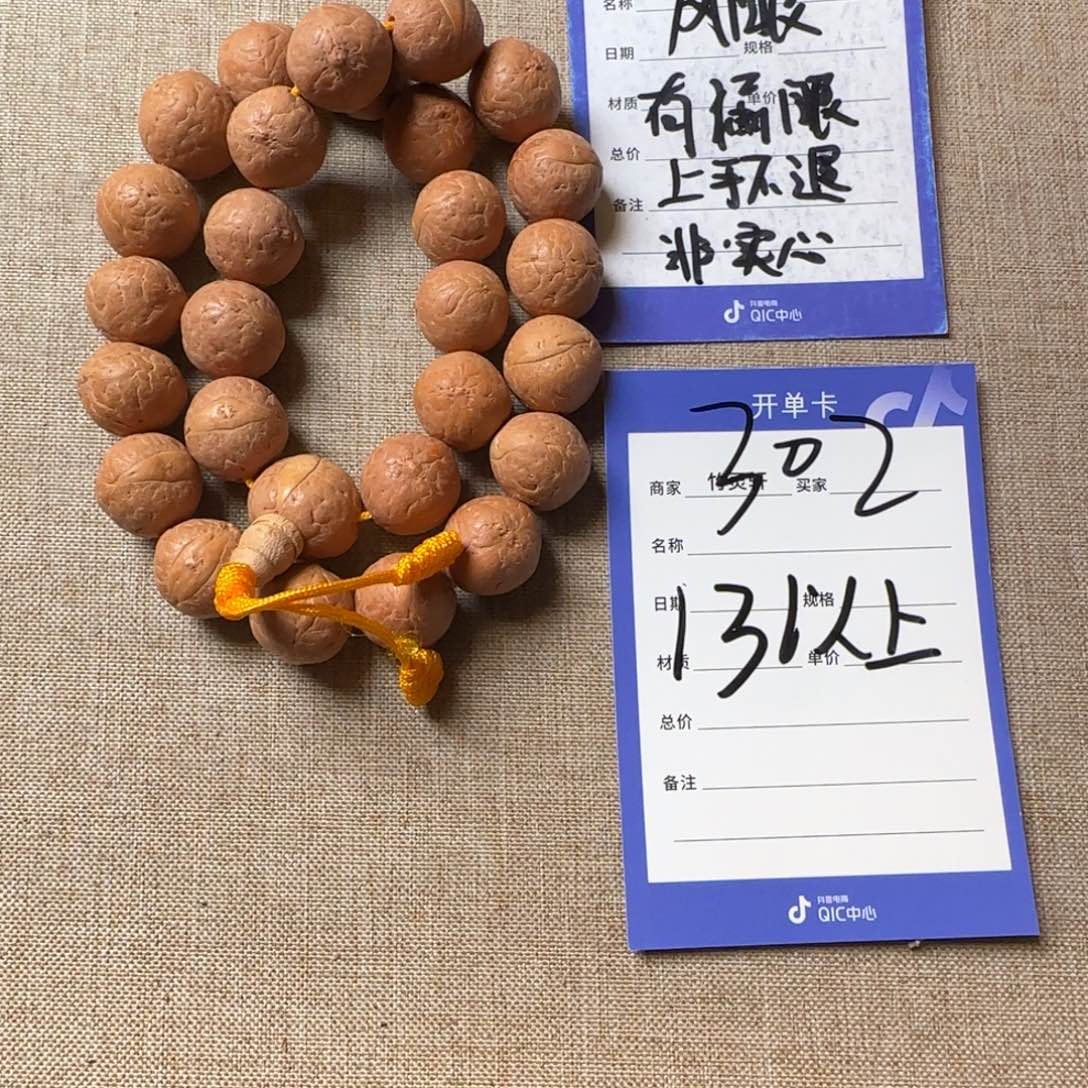 名称 风眼
日期 规格
材质 单价
有瑕眼
总价
上手不退
备注
非实心
抖音电商
QIC中心
开单卡
302
商家 竹灵轩 买家
名称
日期 规格
131以上
材质 单价
总价
备注
抖音电商
QIC中心